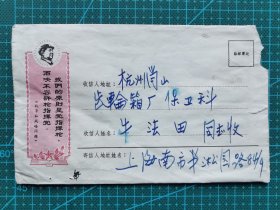 贴邮票处
收信人地址：杭州萧山
齿轮箱厂保卫科
收信人姓名：牛法田 同志收
寄信人地址姓名：上海南市
我們的原則是党指挥枪，
而决不容許枪指挥党。